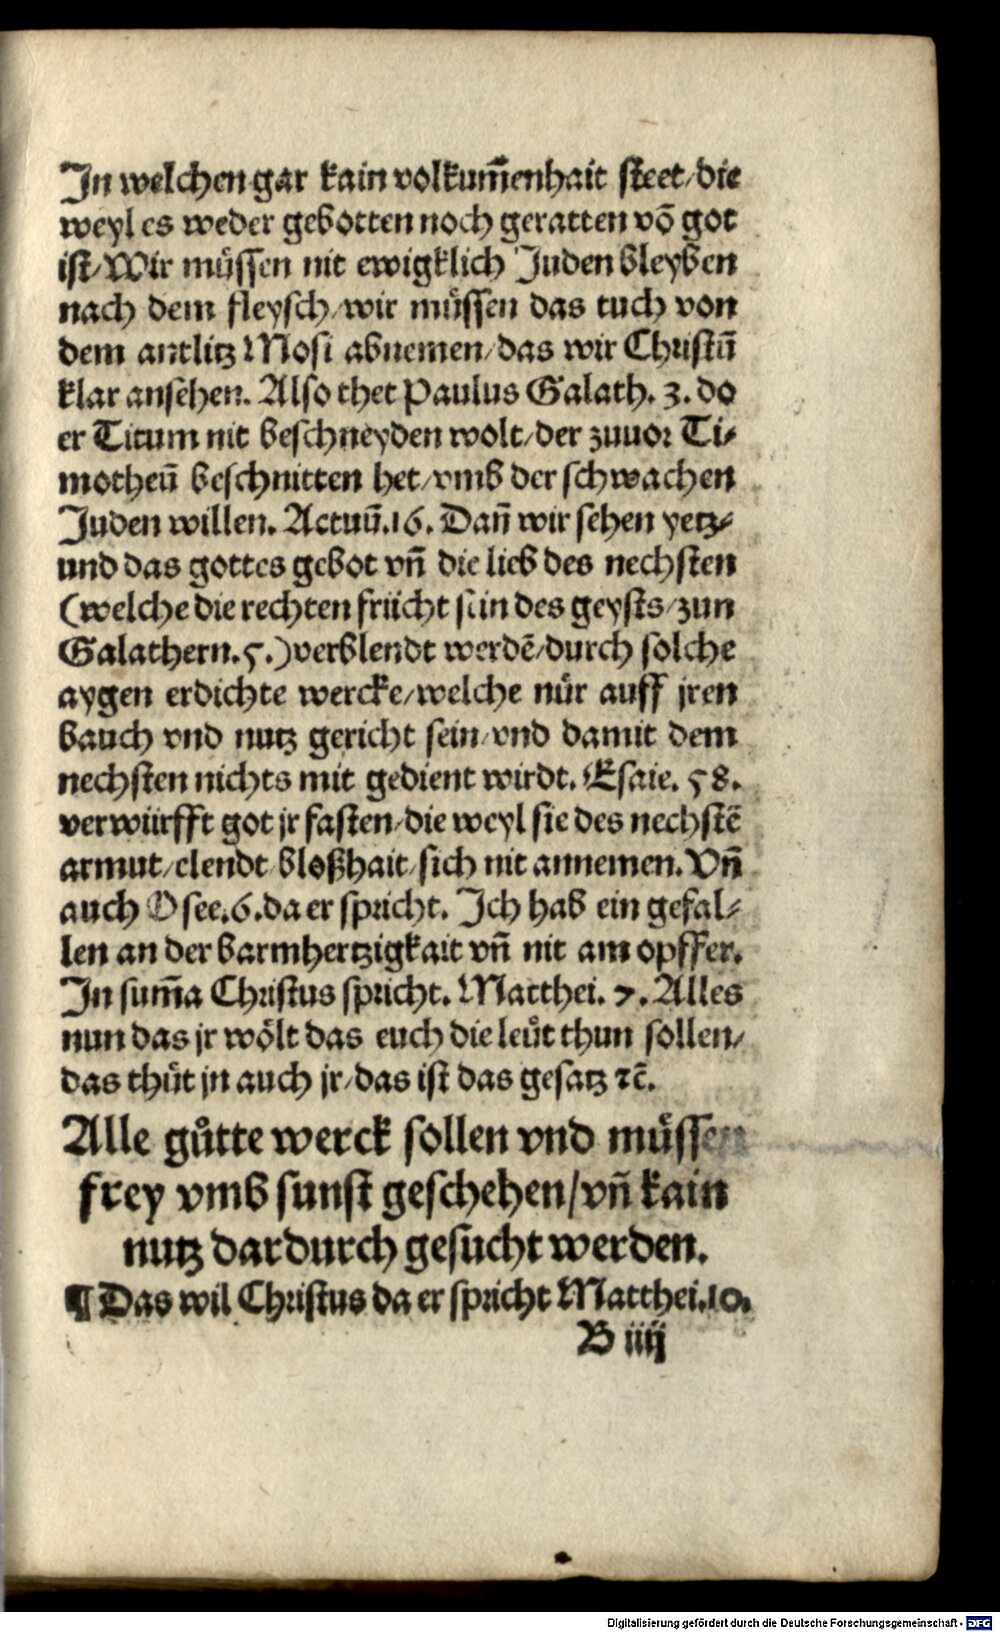 In welchen gar kain volkum̄enhait steet/die
weyl es weder gebotten noch geratten vō got
ist/Wir müssen nit ewigklich Juden bleyben
nach dem fleysch/wir müssen das tuch von
dem antlitz Mosi abnemen/das wir Christū
klar ansehen. Also thet Paulus Galath. 3. do
er Titum nit beschneyden wolt/der zuuor Ti⸗
motheū beschnitten het/vmb der schwachen
Juden willen. Actuū.16. Dan̄ wir sehen yetz⸗
und das gottes gebot vn̄ die lieb des nechsten
(welche die rechten frücht sein des geysts/zun
Galathern.5.)verblendt werdē/durch solche
aygen erdichte wercke/welche nür auff jren
bauch vnd nutz gericht sein/vnd damit dem
nechsten nichts mit gedient wirdt. Esaie. 58.
verwürfft got jr fasten/die weyl sie des nechstē
armut/elendt bloßhait/sich nit annemen. Vn̄
auch Osee.6.da er spricht. Ich hab ein gefal⸗
len an der barmhertzigkait vn̄ nit am opffer.
In sum̄a Christus spricht. Matthei. 7. Alles
nun das jr wölt das euch die leüt thun sollen/
das thüt jn auch jr/das ist das gesatz ⁊c̄.
Alle gůtte werck sollen vnd müssen
frey vmb sunst geschehen/vn̄ kain
nutz dardurch gesucht werden.
¶ Das wil Christus da er spricht Matthei.10.
B iiij
Digitalisierung gefördert durch die Deutsche Forschungsgemeinschaft - DFG